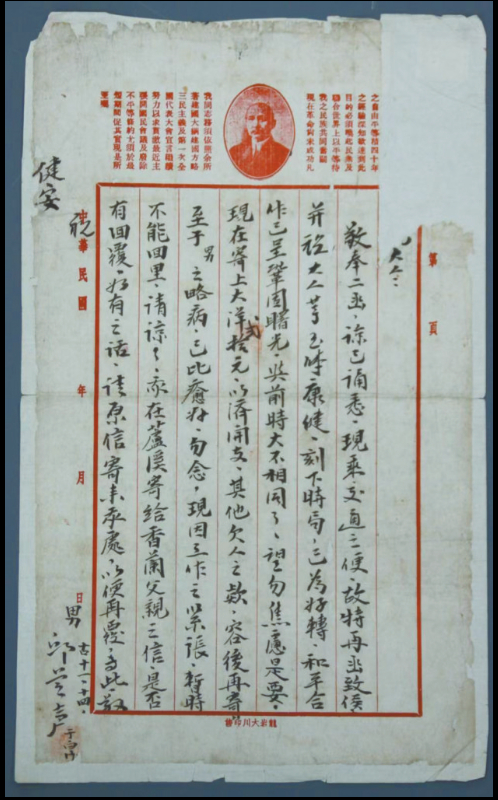 之自由平等積四十年
之經驗深知欲達到此
目的必須喚起民衆及
聯合世界上以平等待
我之民族共同奮鬥
現在革命尚未成功凡
我同志務須依照余所
著建國大綱建國方略
三民主義及第一次全
國代表大會宣言繼續
努力以求貫徹最近主
張開國民會議及廢除
不平等條約尤須於最
短期間促其實現是所
至囑
第 頁
大人:
敬奉二函、諒已誦悉、現乘交通之便、故特再函致候
并祝大人等玉体康健、刻下時局、已為好轉、和平合
作已呈鞏固曙光、與前時大不相同了、望勿焦慮是要、
現在寄上大洋貳拾元、以濟開支、其他欠人之款、容後再寄
至于男之略病、已比癒好、勿念、現因工作之緊張、暫時
不能回里、請諒、亦在蘆溪寄給香蘭父親之信、是否
有回覆、如有之話、請原信寄來處、以便再覆、此、敬
祝
健安
中華民國 年 月 日
男 邱
十一、十四、
龍岩大川印